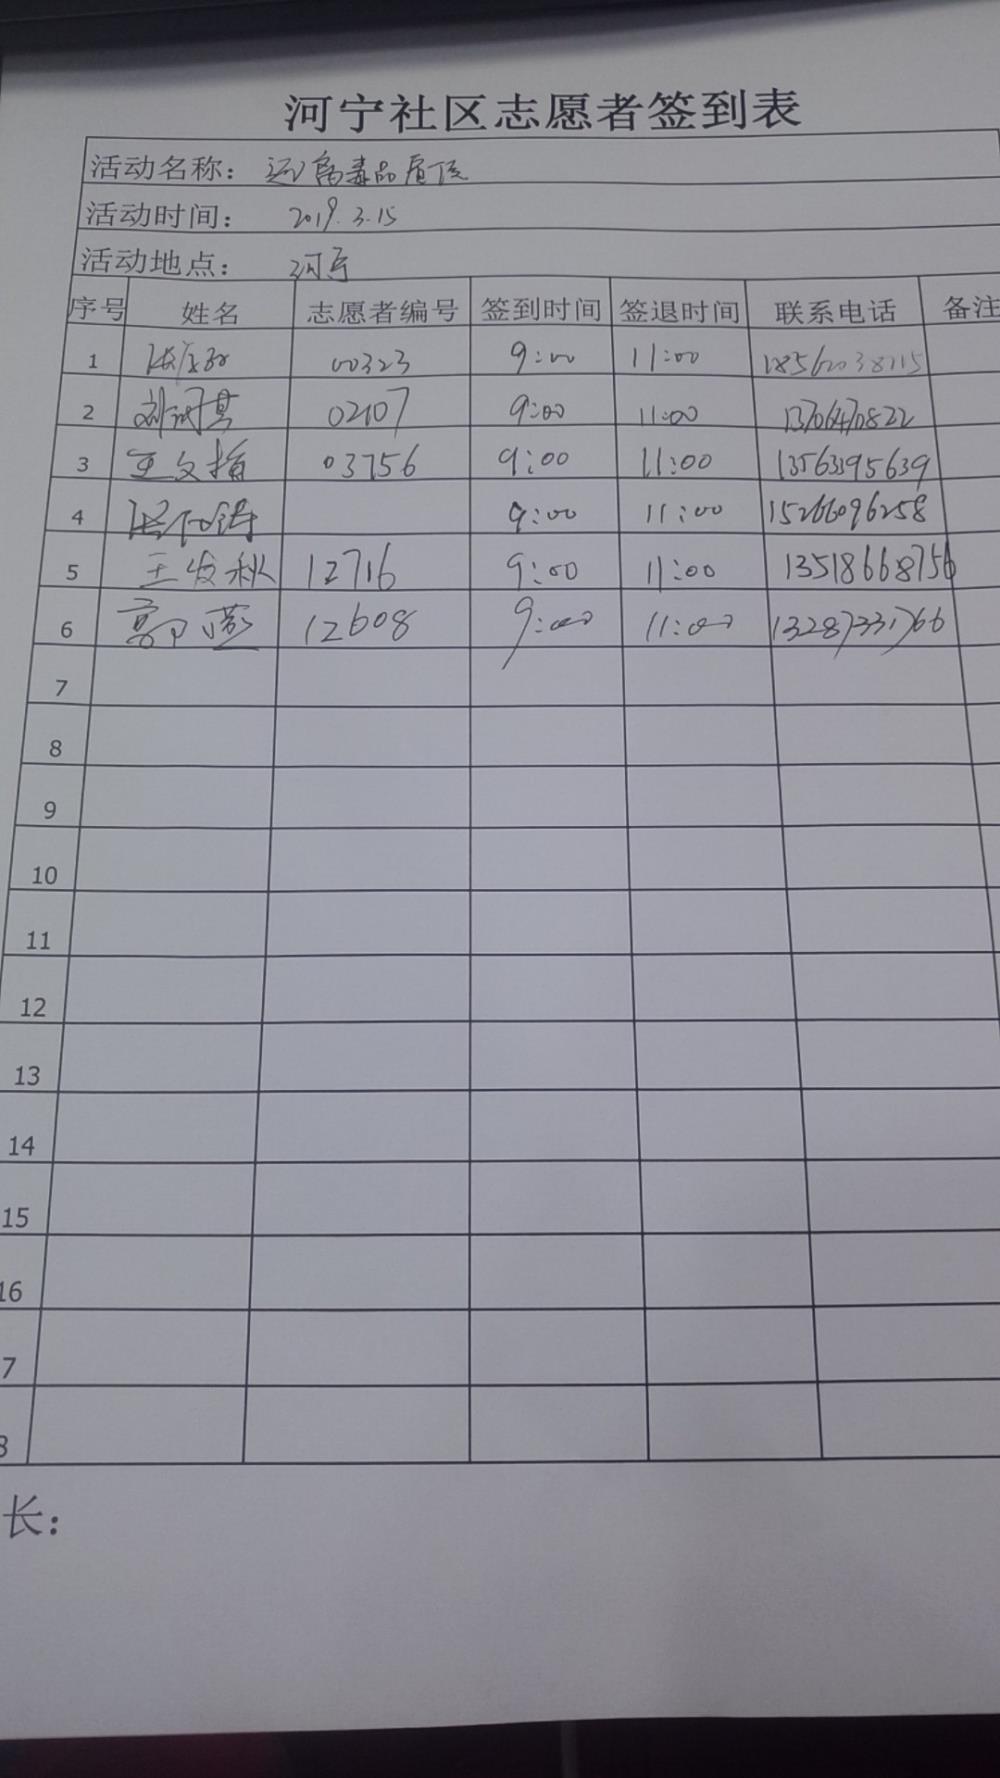 河宁社区志愿者签到表
活动名称：远离毒品宣传
活动时间：2019.3.15
活动地点：河宁
序号 姓名 志愿者编号 签到时间 签退时间 联系电话 备注
1 00323 9:00 11:00 18562038115
2 02107 9:00 11:00 13706470822
3 王文梅 03756 9:00 11:00 13563395639
4 9:00 11:00 15266096258
5 王发秋 12716 9:00 11:00 13518668756
6 郭 12608 9:00 11:00 13287331766
7
8
9
10
11
12
13
14
15
16
7
8
长：